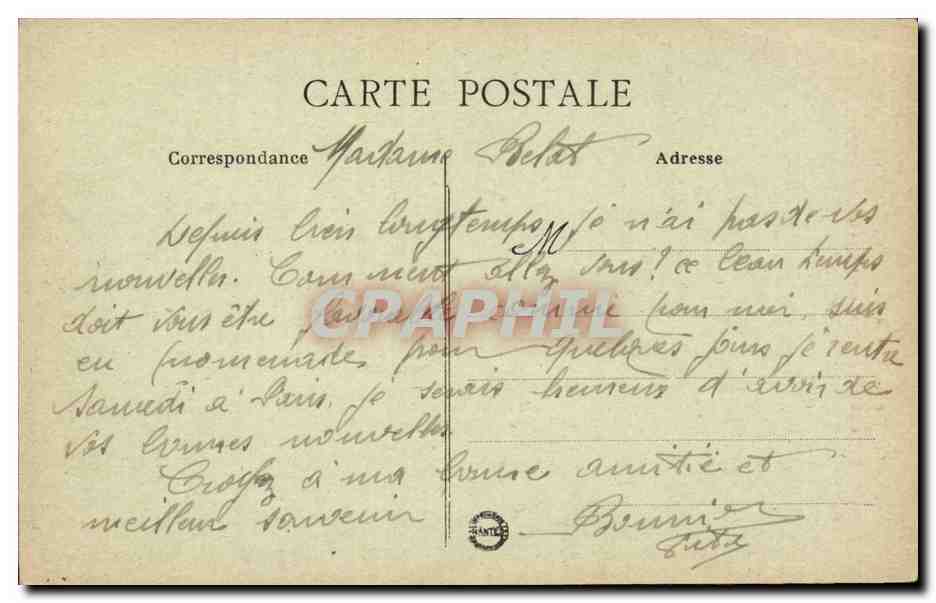 CARTE POSTALE
Correspondance Madame Belat Adresse
Depuis bien longtemps je n'ai pas de vos
M
nouvelles. Comment allez vous ? ce beau temps
doit vous être favorable comme pour moi, suis
en promenade pour quelques jours je rentre
Samedi à Paris. je serais heureux d'avoir de
vos bonnes nouvelles
Croyez à ma bonne amitié et
meilleur souvenir
Bonnier
NANTES
CPAPHIL